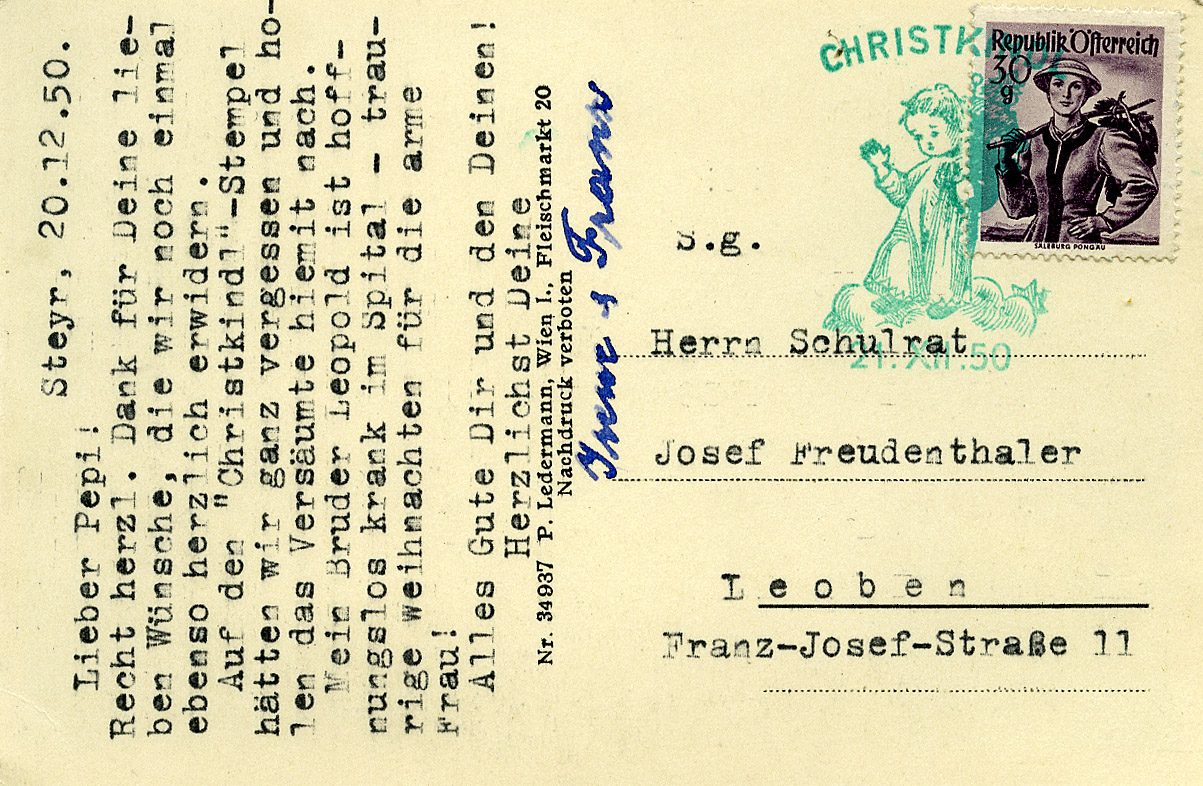 Steyr, 20.12.50.
Lieber Pepi!
Recht herzl. Dank für Deine lie-
ben Wünsche, die wir noch einmal
ebenso herzlich erwidern.
Auf den "Christkindl"-Stempel
hätten wir ganz vergessen und ho-
len das Versäumte hiemit nach.
Mein Bruder Leopold ist hoff-
nungslos krank im Spital - trau-
rige Weihnachten für die arme
Frau!
Alles Gute Dir und den Deinen!
Herzlichst Deine
Nr. 34937 P. Ledermann, Wien I., Fleischmarkt 20
Nachdruck verboten
Franz
CHRISTKINDL
21.XII.50
Republik Österreich
30
g
SALZBURG PONGAU
S.g.
Herrn Schulrat
Josef Freudenthaler
Leoben
Franz-Josef-Straße 11